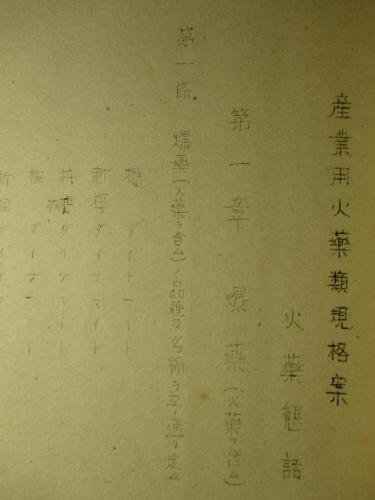 産業用火藥類規格案
火藥懇話
第一章 爆藥(火藥ヲ含ム)
第一條 爆藥(火藥ヲ含ム)ノ品種及名稱ヲ左ノ通リ定ム
櫻ダイナマイト
新櫻ダイナマイト
特櫻ダイナマイト
桐ダイナマイト